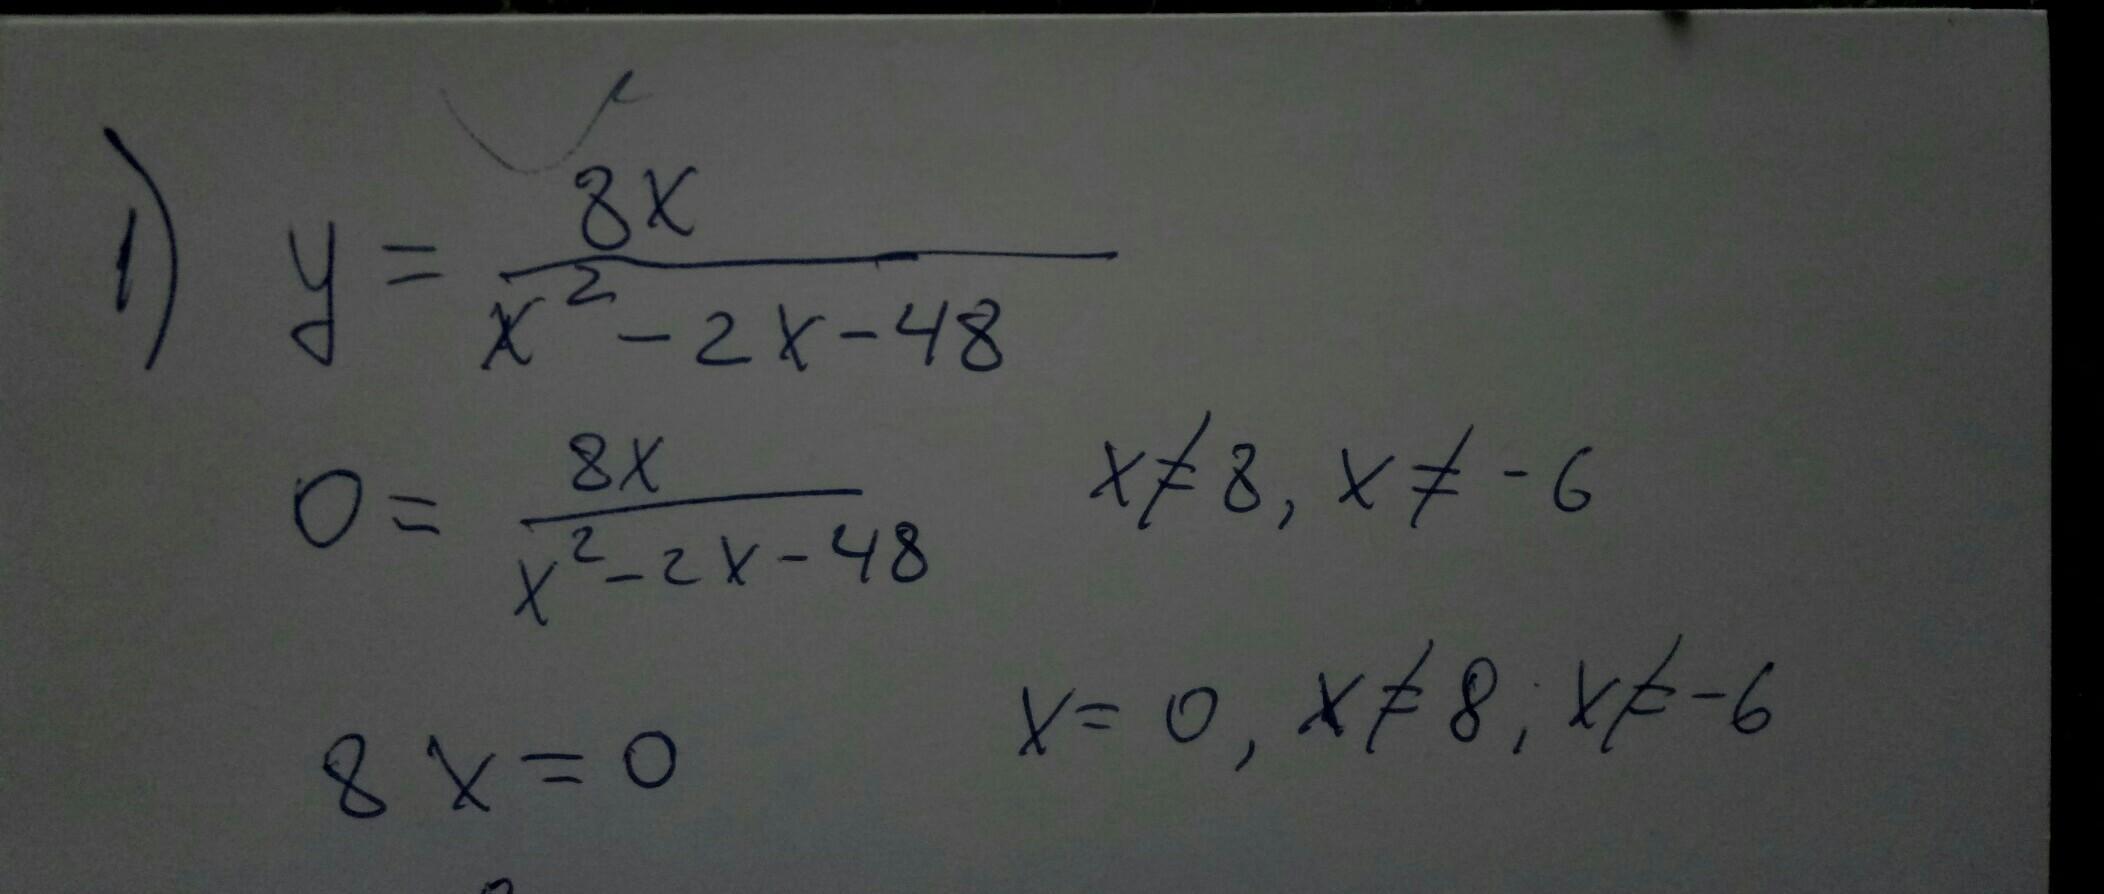 1) y = 8x / x² - 2x - 48
0 = 8x / x² - 2x - 48   x ≠ 8, x ≠ -6
8x = 0   x = 0, x ≠ 8, x ≠ -6